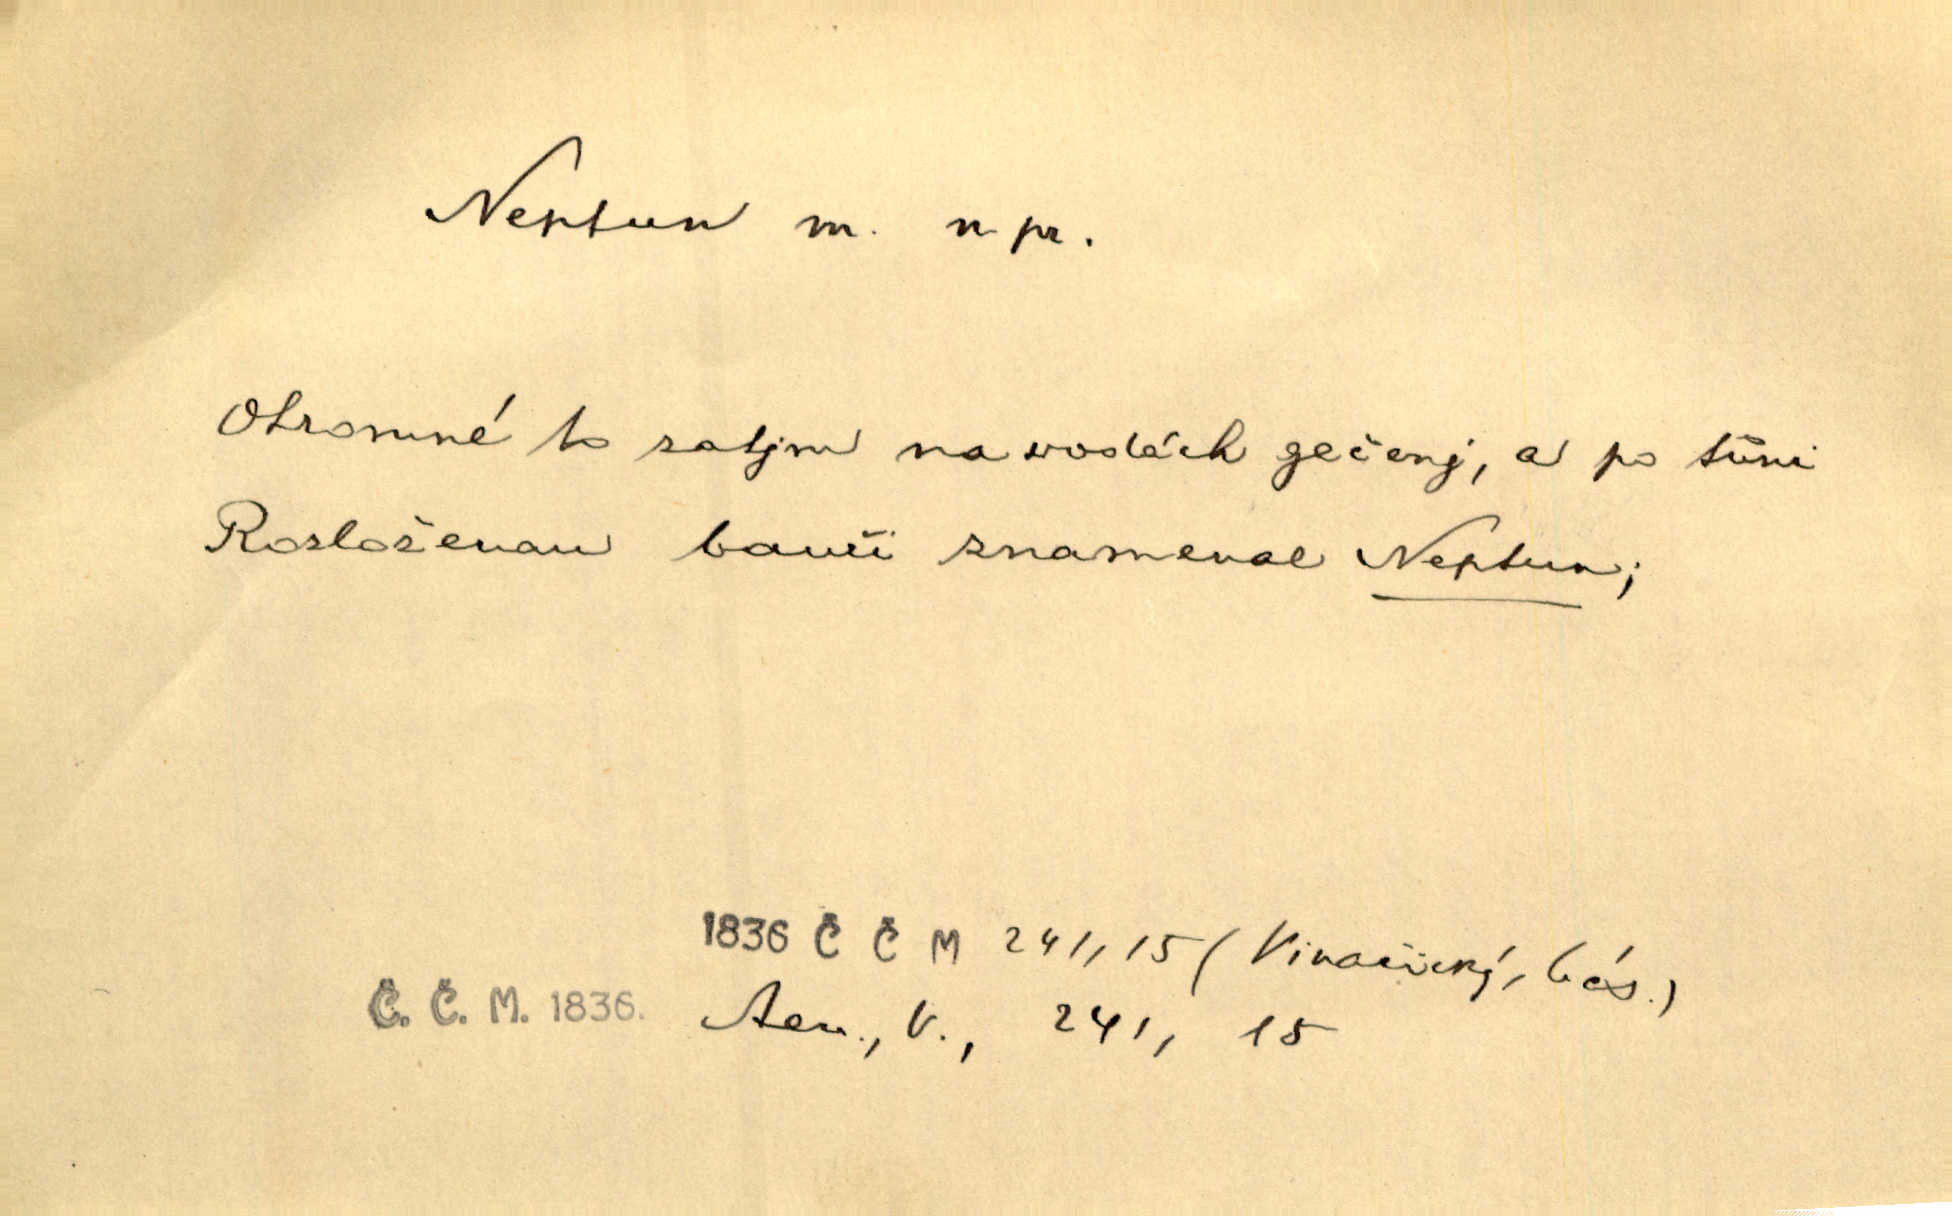 Neptun m. n. pr.
Ohromné to zatjm na wodách gečenj, a po tůni
Rozloženau bauři znamenal Neptun;
1836 Č Č M 241, 15 (Vinařický, bás.)
Č. Č. M. 1836. Aen., V., 241, 15